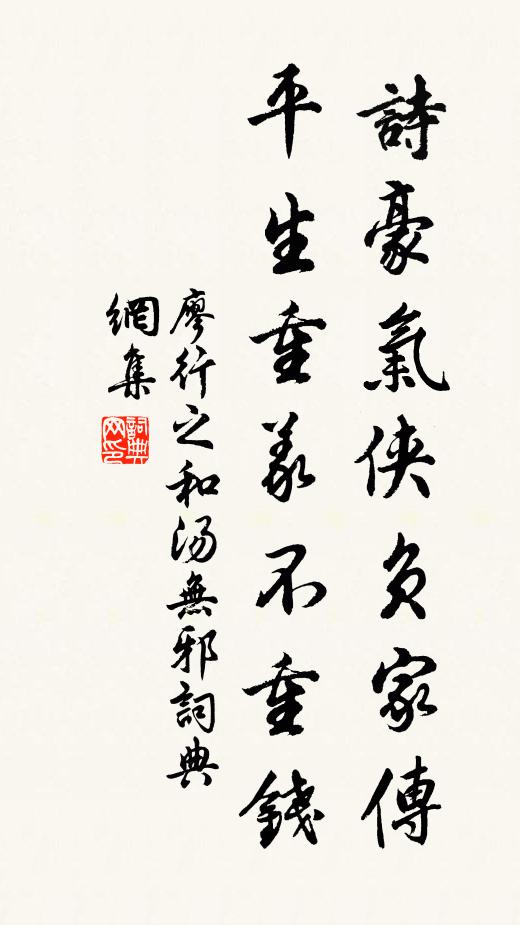 詩豪氣俠負家傳
平生重義不重錢
廖行之和湯無邪詞典
網集
詞典
网印